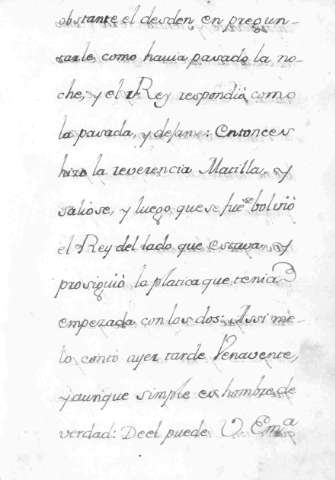 obstante el desden en pregun-
tarle, como hauia pasado la no-
che, y el Rey respondiò como
la pasada, y dejame: Entonces
hizo la reverencia Matilla, y
saliose, y luego que se fue se bolviò
el Rey del lado que estava, y
prosiguiò la platica que tenia
empezada con los dos: Assi me-
lo contò ayer tarde Venavente,
y aunque simple es hombre de
verdad: De el puede V. Em.ª